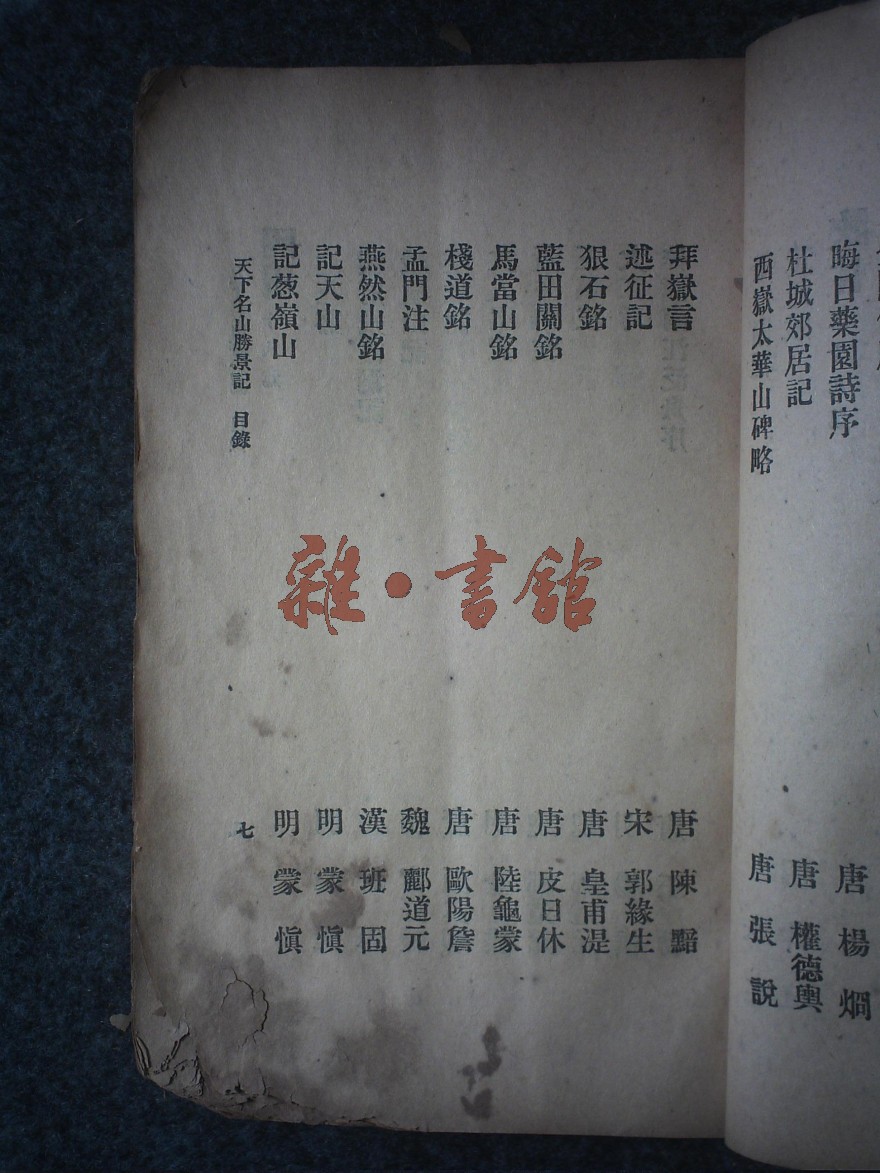 晦日藥園詩序 唐 楊烱
杜城郊居記 唐 權德輿
西嶽太華山碑略 唐 張說
拜嶽言 唐 陳黯
述征記 宋 郭緣生
狠石銘 唐 皇甫湜
藍田關銘 唐 皮日休
馬當山銘 唐 陸龜蒙
棧道銘 唐 歐陽詹
孟門注 魏 酈道元
燕然山銘 漢 班固
記天山 明 蒙愼
記葱嶺山 明 蒙愼
天下名山勝景記 目錄 七
雜·書館